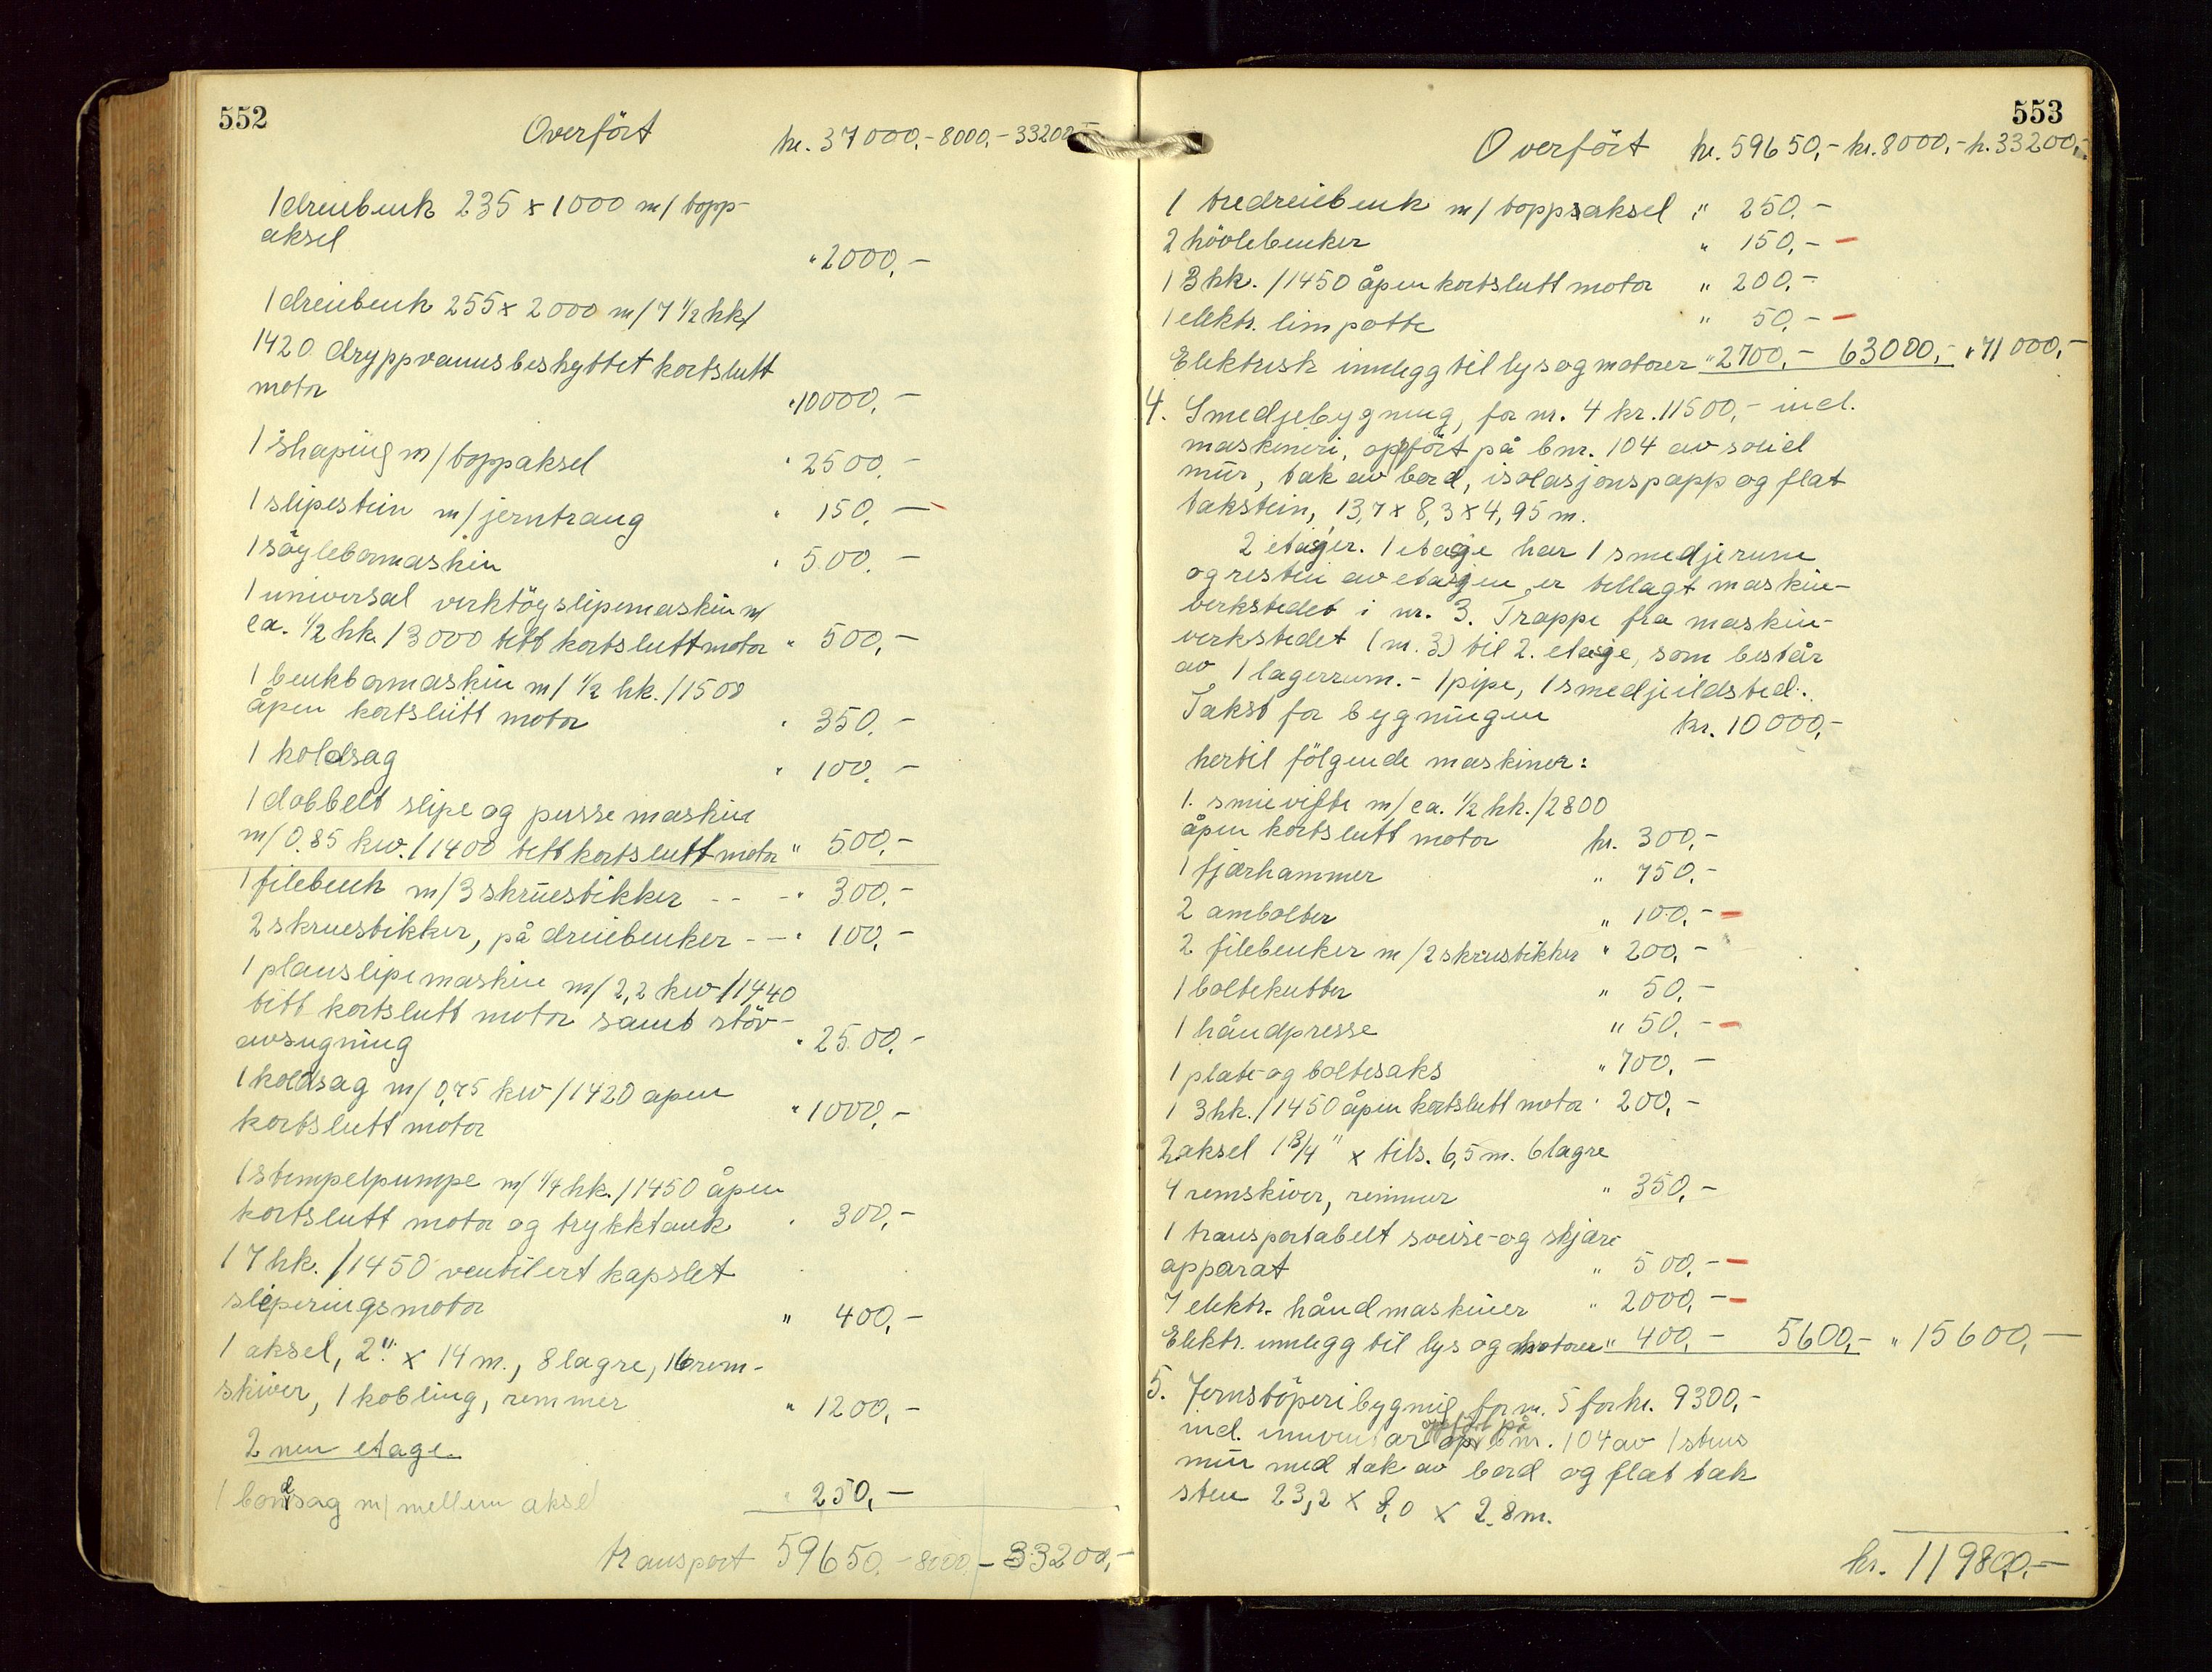 552
Overfört kr. 37000,- 8000,- 33200,-
1 dreiebenk 235 x 1000 m/ topp-
aksel " 2000,-
1 dreiebenk 255 x 2000 m/ 7 1/2 hk/
1420 dryppvannsbeskyttet kortslutt
motor " 10000,-
1 shaping m/ toppaksel " 2500,-
1 slipestein m/ jerntraug " 150,-
1 söylebormaskin " 500,-
1 universal verktöyslipemaskin m/
ca. 1/2 hk. / 3000 tett kortsluttmotor " 500,-
1 benkbormaskin m/ 1/2 hk. / 1500
åpen kortslutt motor " 350,-
1 koldsag " 100,-
1 dobbelt slipe og pusse maskin
m/ 0.85 kw. / 1400 tett kortslutt motor " 500,-
1 filebenk m/ 3 skruestikker - - - " 300,-
2 skruestikker, på dreiebenker - - " 100,-
1 planslipemaskin m/ 2,2 kw / 1440
tett kortslutt motor samt stöv-
avsugning " 2500,-
1 koldsag m/ 0,75 kw / 1420 åpen
kortslutt motor " 1000,-
1 stempelpumpe m/ 1/4 hk. / 1450 åpen
kortslutt motor og trykktank " 300,-
1 7 hk. / 1450 ventilert kapslet
sleperingsmotor " 400,-
1 aksel, 2" x 14 m., 8 lagre, 16 rem-
skiver, 1 kobling, remmer " 1200,-
2nen etage.
1 bandsag m/ mellem aksel " 250,-
transport 59650,- 8000,- 33200,-
553
Overfört kr. 59650,- kr. 8000,- kr. 33200,-
1 tredreiebenk m/ toppsaksel " 250,-
2 hövlebenker " 150,- -
1 3 hk. / 1450 åpen kortslutt motor " 200,-
1 elektr. limpotte " 50,- -
Elektrisk innlegg til lys og motorer " 2700,- 63000,- " 71000,-
4. Smedjebygning, for nr. 4 kr. 11500,- incl.
maskineri, oppfört på bnr. 104 av solid
mur, tak av bord, isolasjonspapp og flat
takstein, 13,7 x 8,3 x 4,95 m.
2 etasjer. 1 etasje har 1 smedjerum
og resten av etasjen er tillagt maskin-
verkstedet i nr. 3. Trappe fra maskin-
verkstedet (nr. 3) til 2. etasje, som består
av 1 lagerrum. - 1 pipe, 1 smedjeildsted.
Takst for bygningen kr. 10000,-
hertil fölgende maskiner:
1 smievifte m/ ca. 1/2 hk. / 2800
åpen kortslutt motor kr. 300,-
1 fjærhammer " 750,-
2 ambolter " 100,- -
2 filebenker m/ 2 skruestikker " 200,-
1 boltekutter " 50,-
1 håndpresse " 50,- -
1 plate- og boltesaks " 700,-
1 3 hk. / 1450 åpen kortslutt motor " 200,-
2 aksel 1 3/4" x tils. 6,5 m. 6 lagre
4 remskiver, remmer " 350,-
1 transportabelt sveise- og skjære
apparat " 500,- -
7 elektr. håndmaskiner " 2000,- -
Elektr. innlegg til lys og motorer " 400,- 5600,- " 15600,-
5. Jernstöperibygnig, for nr. 5 for kr. 9300,-
incl. inventar oppfört på bnr. 104 av 1 stens
mur med tak av bord og flat tak
sten 23,2 x 8,0 x 2.8 m.
kr. 119800,-